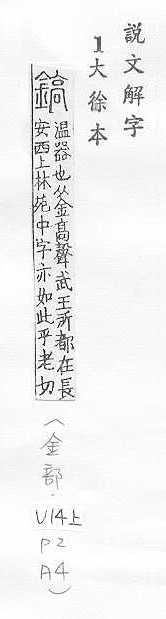 說文解字
1大徐本
鎬
温器也从金高聲武王所都在長
安西上林苑中字亦如此乎老切
(金部.
U14上
P2
A4)